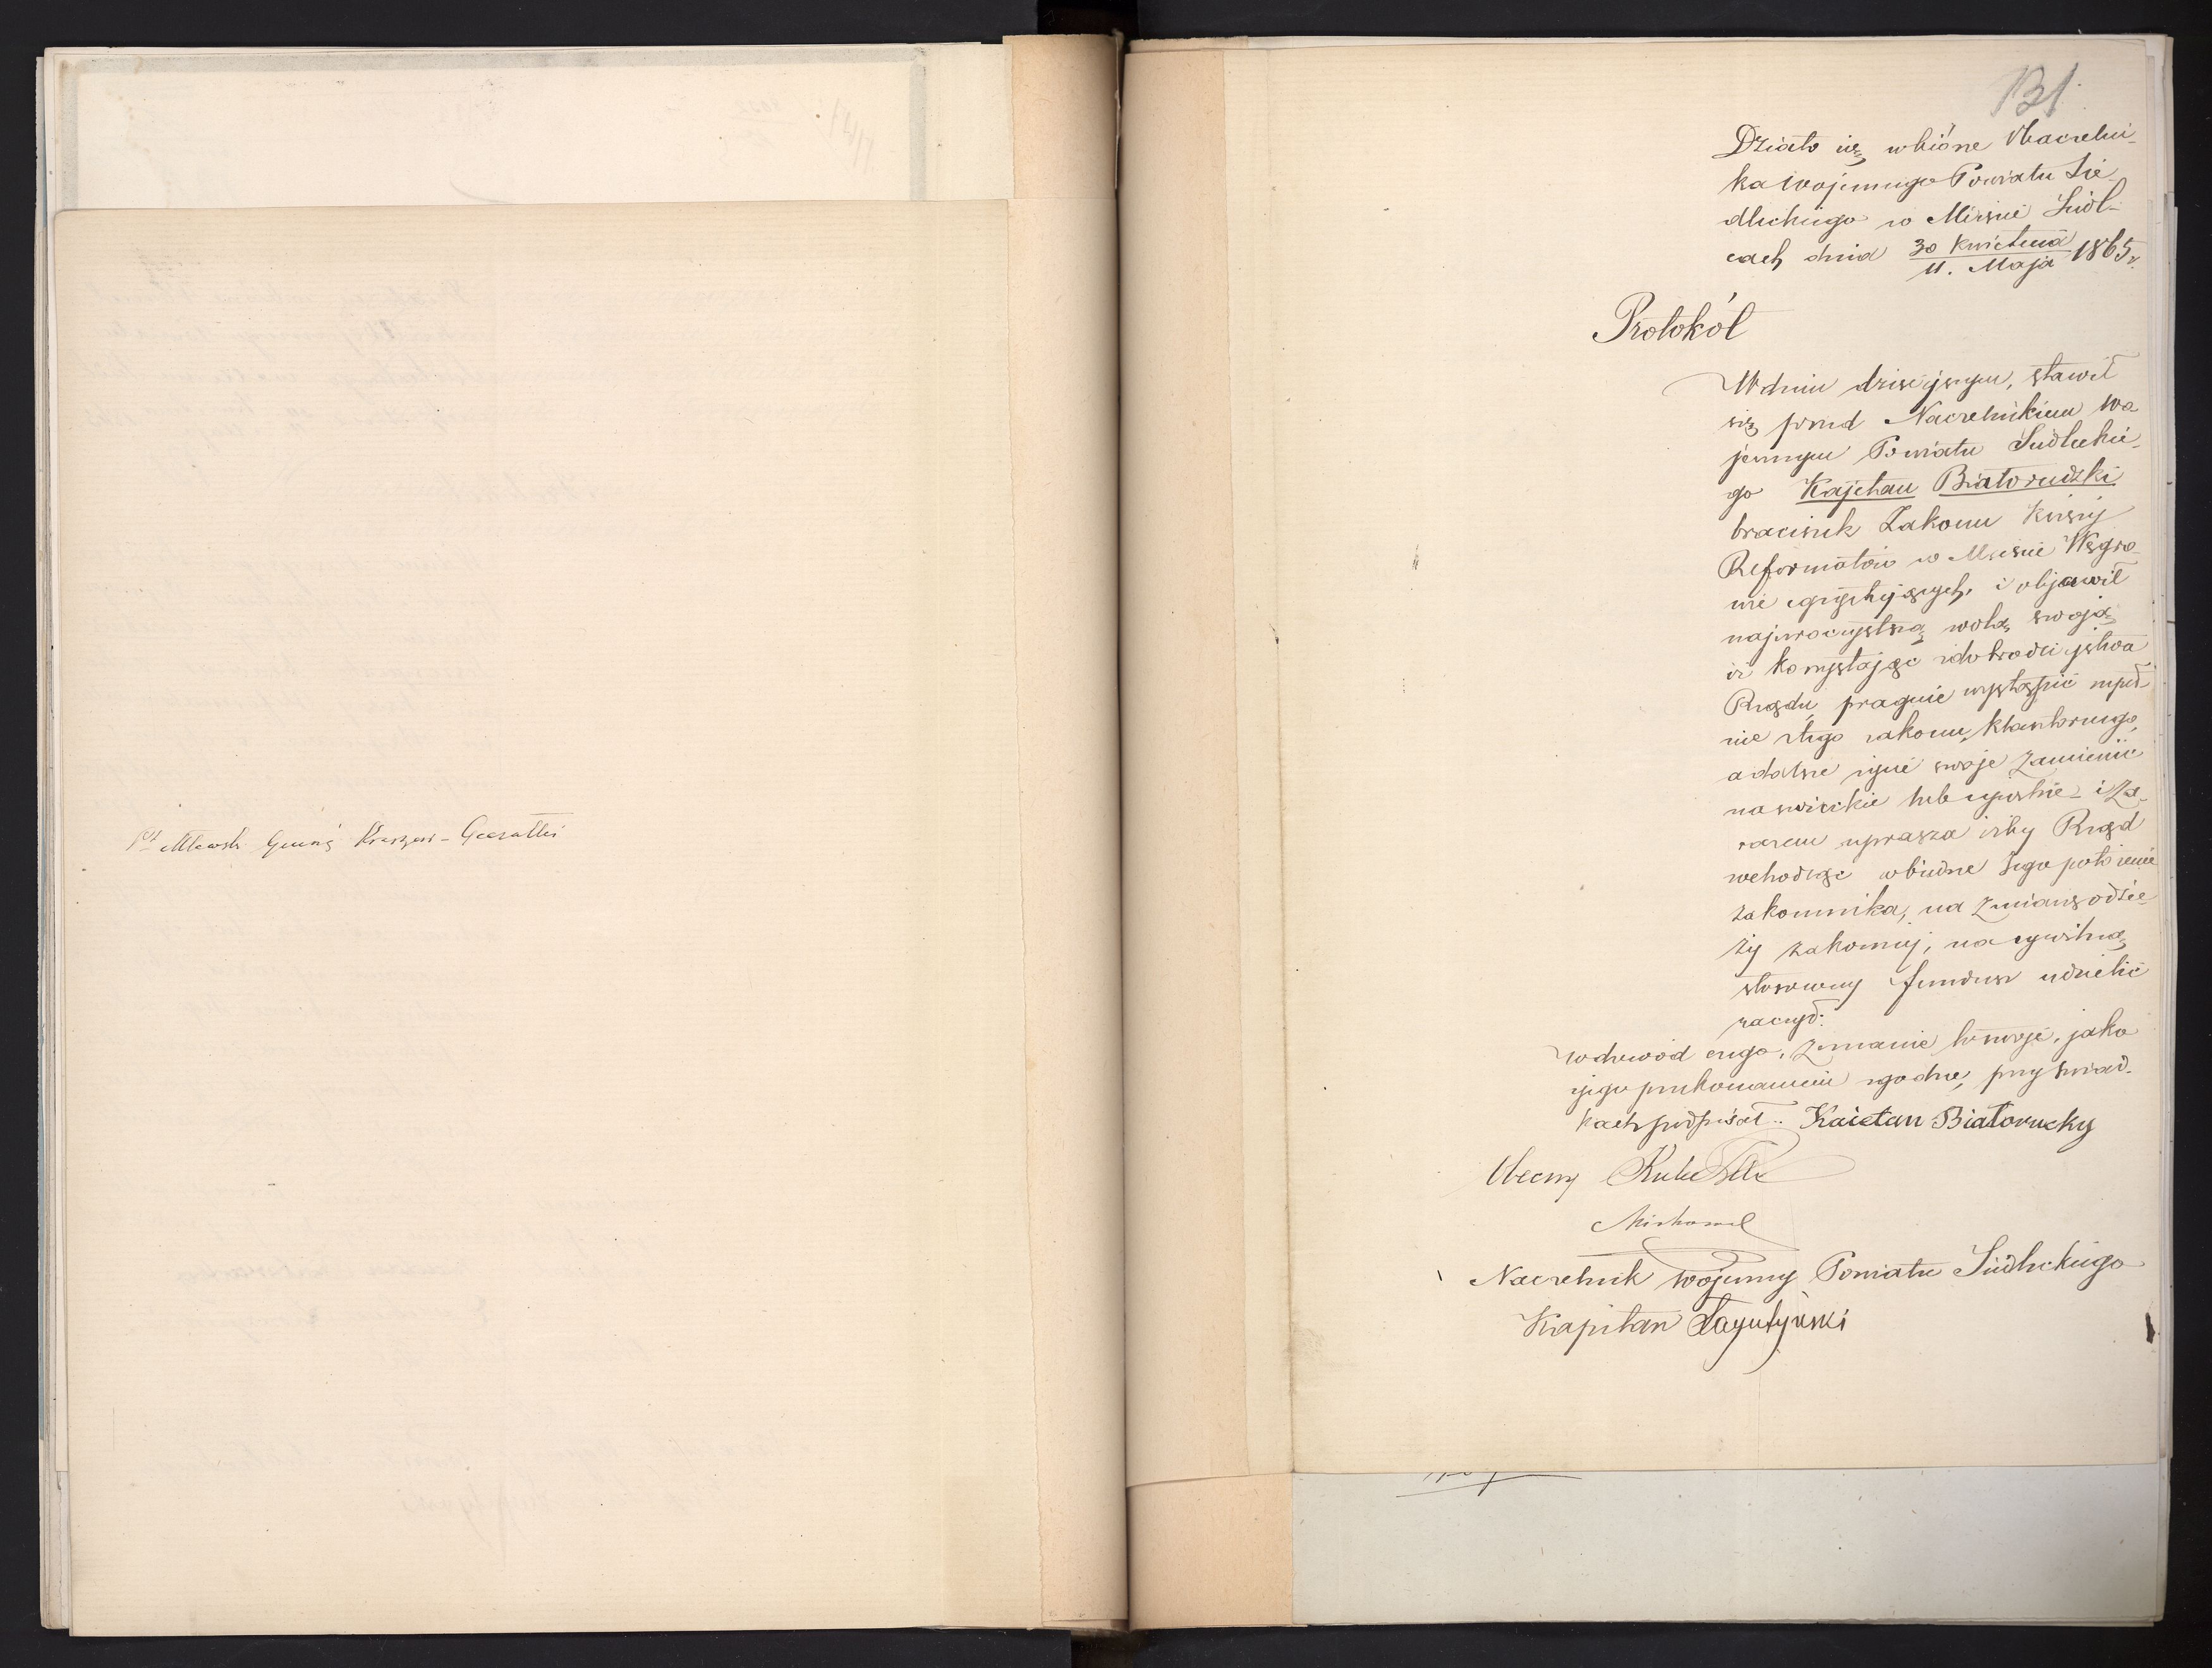 Mlewsk Gminy
131
Działo się w biórze Naczelni-
ka Wojennego Powiatu Sie-
dleckiego w Mieście Siedl-
cach dnia 30 Kwietnia / 11. Maja 1865 r.
Protokół
W dniu dzisiejszym, stawił
się przed Naczelnikiem Wo-
jennym Powiatu Siedleckie-
go Kajetan Białorudzki
braciszek Zakonu Księży
Reformatów w Mieście Węgro-
wie egzystujących, i objawił
najuroczystszą wolą swoją,
iż korzystając z dobrodziejstwa
Rządu, pragnie wystąpić zupeł-
nie z tego zakonu klasztornego,
a dalsze życie swoje zamienić
na świeckie lub cywilne – i za-
razem uprasza iżby Rząd
wchodząc w biedne jego położenie
zakonnika, na zmianę odzie-
ży zakonnej, na cywilną,
stosowny fundusz udzielić
raczył.
W dowód czego, zeznanie to swoje, jako
z jego przekonaniem zgodne, przy świad-
kach podpisał.. Kaietan Białorucky
Obecny
Naczelnik Wojenny Powiatu Siedleckiego
Kapitan